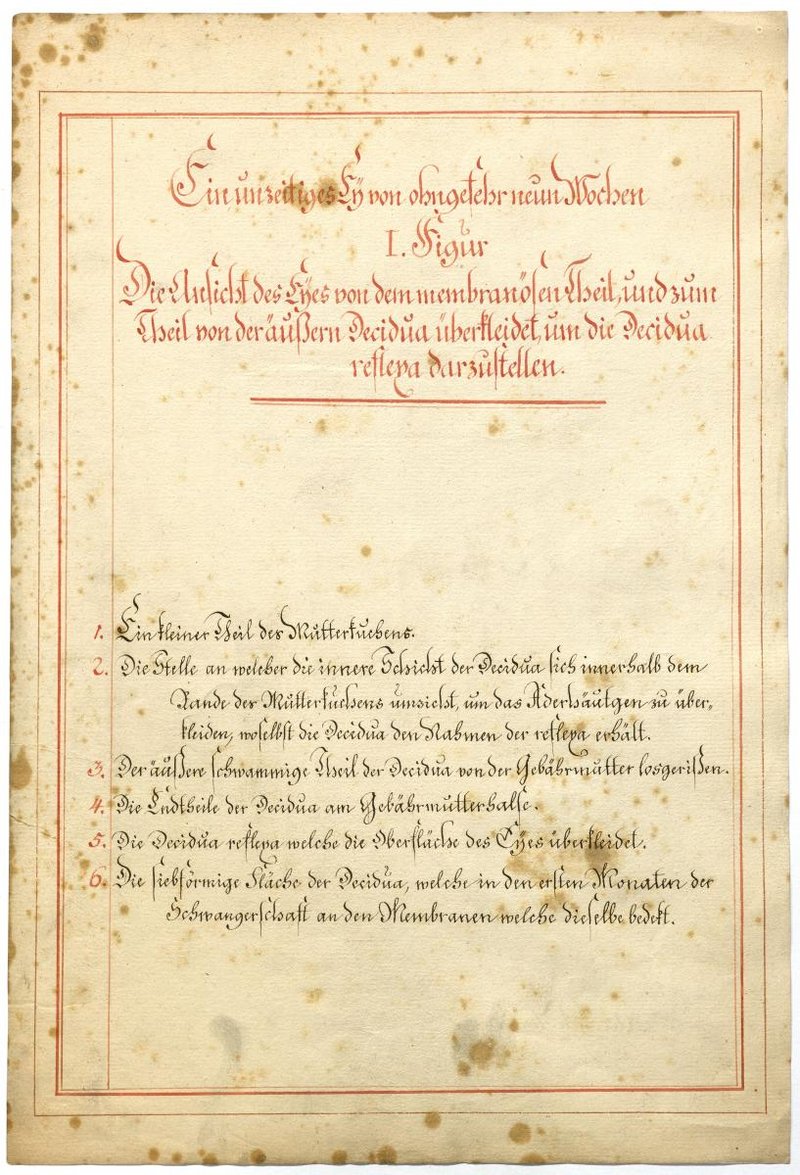 Ein unzeitiges Eÿ von ohngefehr neun Wochen
I. Figur
Die Ansicht des Eÿes von dem membranösen Theil, und zum
Theil von der äußern Decidua überkleidet, um die Decidua
reflexa darzustellen.
1. Ein kleiner Theil des Mutterkuchens.
2. Die Stelle an welcher die innere Schicht der Decidua sich innerhalb dem
Rande der Mutterkuchens umzieht, um das Aderhäutgen zu über-
kleiden, woselbst die Decidua den Nahmen der reflexa erhält.
3. Der äußere schwammige Theil der Decidua von der Gebährmutter losgerißen.
4. Die Endtheile der Decidua am Gebährmutterhalse.
5. Die Decidua reflexa welche die Oberfläche des Eÿes überkleidet.
6. Die siebförmige Fläche der Decidua, welche in den ersten Monaten der
Schwangerschaft an den Membranen welche dieselbe bedekt.